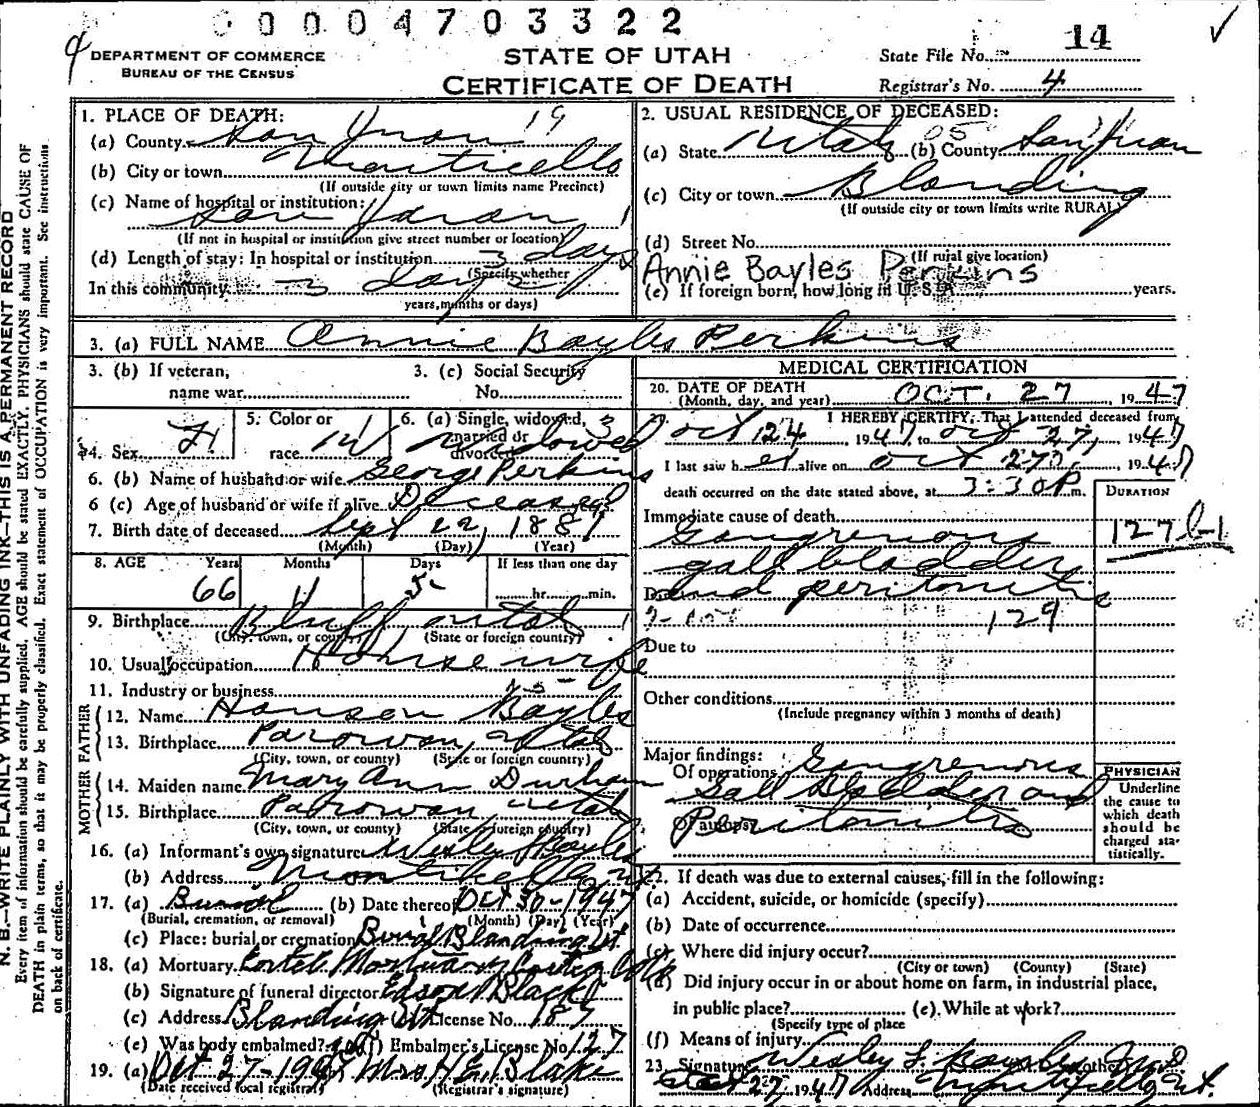 00004703322
DEPARTMENT OF COMMERCE
BUREAU OF THE CENSUS
STATE OF UTAH
CERTIFICATE OF DEATH
State File No. 14
Registrar's No. 4
N. B.—WRITE PLAINLY WITH UNFADING INK—THIS IS A PERMANENT RECORD
Every item of information should be carefully supplied. AGE should be stated EXACTLY. PHYSICIANS should state CAUSE OF
DEATH in plain terms, so that it may be properly classified. Exact statement of OCCUPATION is very important. See instructions
on back of certificate.
1. PLACE OF DEATH: 19
(a) County San Juan
(b) City or town Monticello
(If outside city or town limits name Precinct)
(c) Name of hospital or institution:
San Juan
(If not in hospital or institution give street number or location)
(d) Length of stay: In hospital or institution 3 days
(Specify whether
In this community 3 days
years, months or days)
2. USUAL RESIDENCE OF DECEASED:
(a) State Utah (b) County San Juan
(c) City or town Blanding
(If outside city or town limits write RURAL)
(d) Street No.
(If rural give location)
Annie Bayles Perkins
(e) If foreign born, how long in U. S. A. years.
3. (a) FULL NAME Annie Bayles Perkins
3. (b) If veteran,
name war
3. (c) Social Security
No.
4. Sex F
5. Color or
race W
6. (a) Single, widowed,
married or
divorced widowed
6. (b) Name of husband or wife George Perkins
6 (c) Age of husband or wife if alive Deceased
7. Birth date of deceased Sept 22, 1881
(Month) (Day) (Year)
8. AGE Years Months Days If less than one day
66 5 hr. min.
9. Birthplace Bluff Utah
(City, town, or county) (State or foreign country)
10. Usual occupation Housewife
11. Industry or business
FATHER
12. Name Hanson Bayles
13. Birthplace Parowan, Utah
(City, town, or county) (State or foreign country)
MOTHER
14. Maiden name Mary Ann Durham
15. Birthplace Parowan Utah
(City, town, or county) (State or foreign country)
16. (a) Informant's own signature Wesley Bayles
(b) Address Monticello
17. (a) Burial (b) Date thereof Oct 30-1947
(Burial, cremation, or removal) (Month) (Day) (Year)
(c) Place: burial or cremation Burial Blanding Ut
18. (a) Mortuary Mortuary Cortez Colo
(b) Signature of funeral director Edson Black
(c) Address Blanding Ut License No. 187
(e) Was body embalmed? (f) Embalmer's License No. 127
19. (a) Oct 27-1947 Mrs H E Blake
(Date received local registrar) (Registrar's signature)
MEDICAL CERTIFICATION
20. DATE OF DEATH
(Month, day, and year) OCT. 27 1947
I HEREBY CERTIFY, That I attended deceased from
Oct 24, 1947, to Oct 27, 1947
I last saw her alive on Oct 27, 1947
death occurred on the date stated above, at 3:30 P.m.
DURATION
Immediate cause of death
Gangrenous
gall bladder
and peritonitis
127b-1
129
Due to
Other conditions
(Include pregnancy within 3 months of death)
Major findings:
Of operations Gangrenous
Gall Bladder and
Of autopsy Peritonitis
PHYSICIAN
Underline
the cause to
which death
should be
charged sta-
tistically.
22. If death was due to external causes, fill in the following:
(a) Accident, suicide, or homicide (specify)
(b) Date of occurrence
(c) Where did injury occur?
(City or town) (County) (State)
(d) Did injury occur in or about home on farm, in industrial place,
in public place? (e) While at work?
(Specify type of place
(f) Means of injury
23. Signature Wesley Bayles M.D.
Oct 27 1947 Address Monticello, Ut.